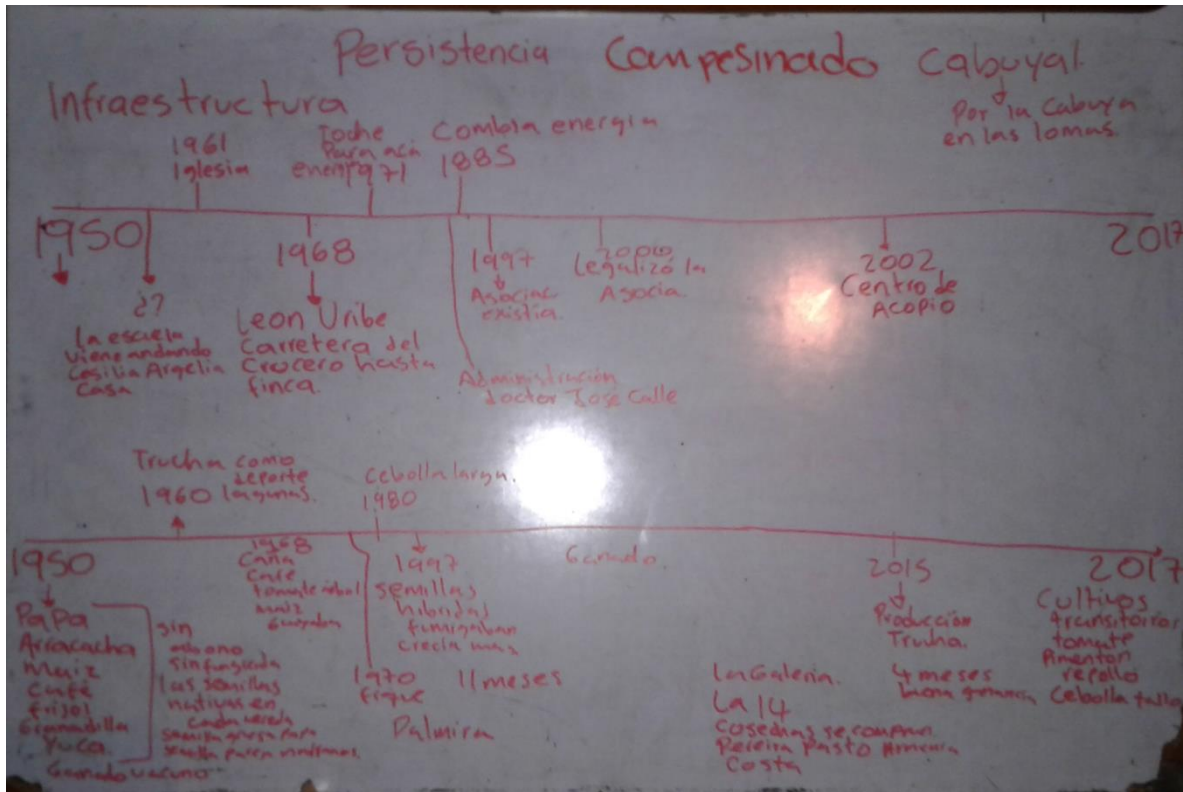 Persistencia Campesinado Cabuyal
Por la Cabuya
en las lomas.
Infraestructura
1961
Iglesia
Toche
Para acá
energ 1971
Combia energía
1885
1950
2017
¿?
La escuela
viene andando
Cesilia Argelia
Casa
1968
Leon Uribe
Carretera del
Crucero hasta
finca.
1997
Asociac
existia.
Legalizó la
Asocia.
2002
Centro de
Acopio
Administración
doctor José Calle
Trucha como
deporte
1960 lagunas.
Cebolla larga.
1980
1950
2017
Papa
Arracacha
Maiz
Café
frijol
Granadilla
Yuca
Ganado vacuno
sin
abono
sin fungicida
las semillas
nativas en
cada vereda
1968
Caña
Café
tomate árbol
maiz
1970
fique
1997
semillas
hibridas
fumigaban
crecia mas
11 meses
Palmira
Ganado.
La Galeria.
La 14
Cosechas se compran
Pereira Pasto Armenia
Costa
2015
Producción
Trucha.
4 meses
buena ganancia
Cultivos
transitorios
tomate
Pimenton
repollo
Cebolla tallo